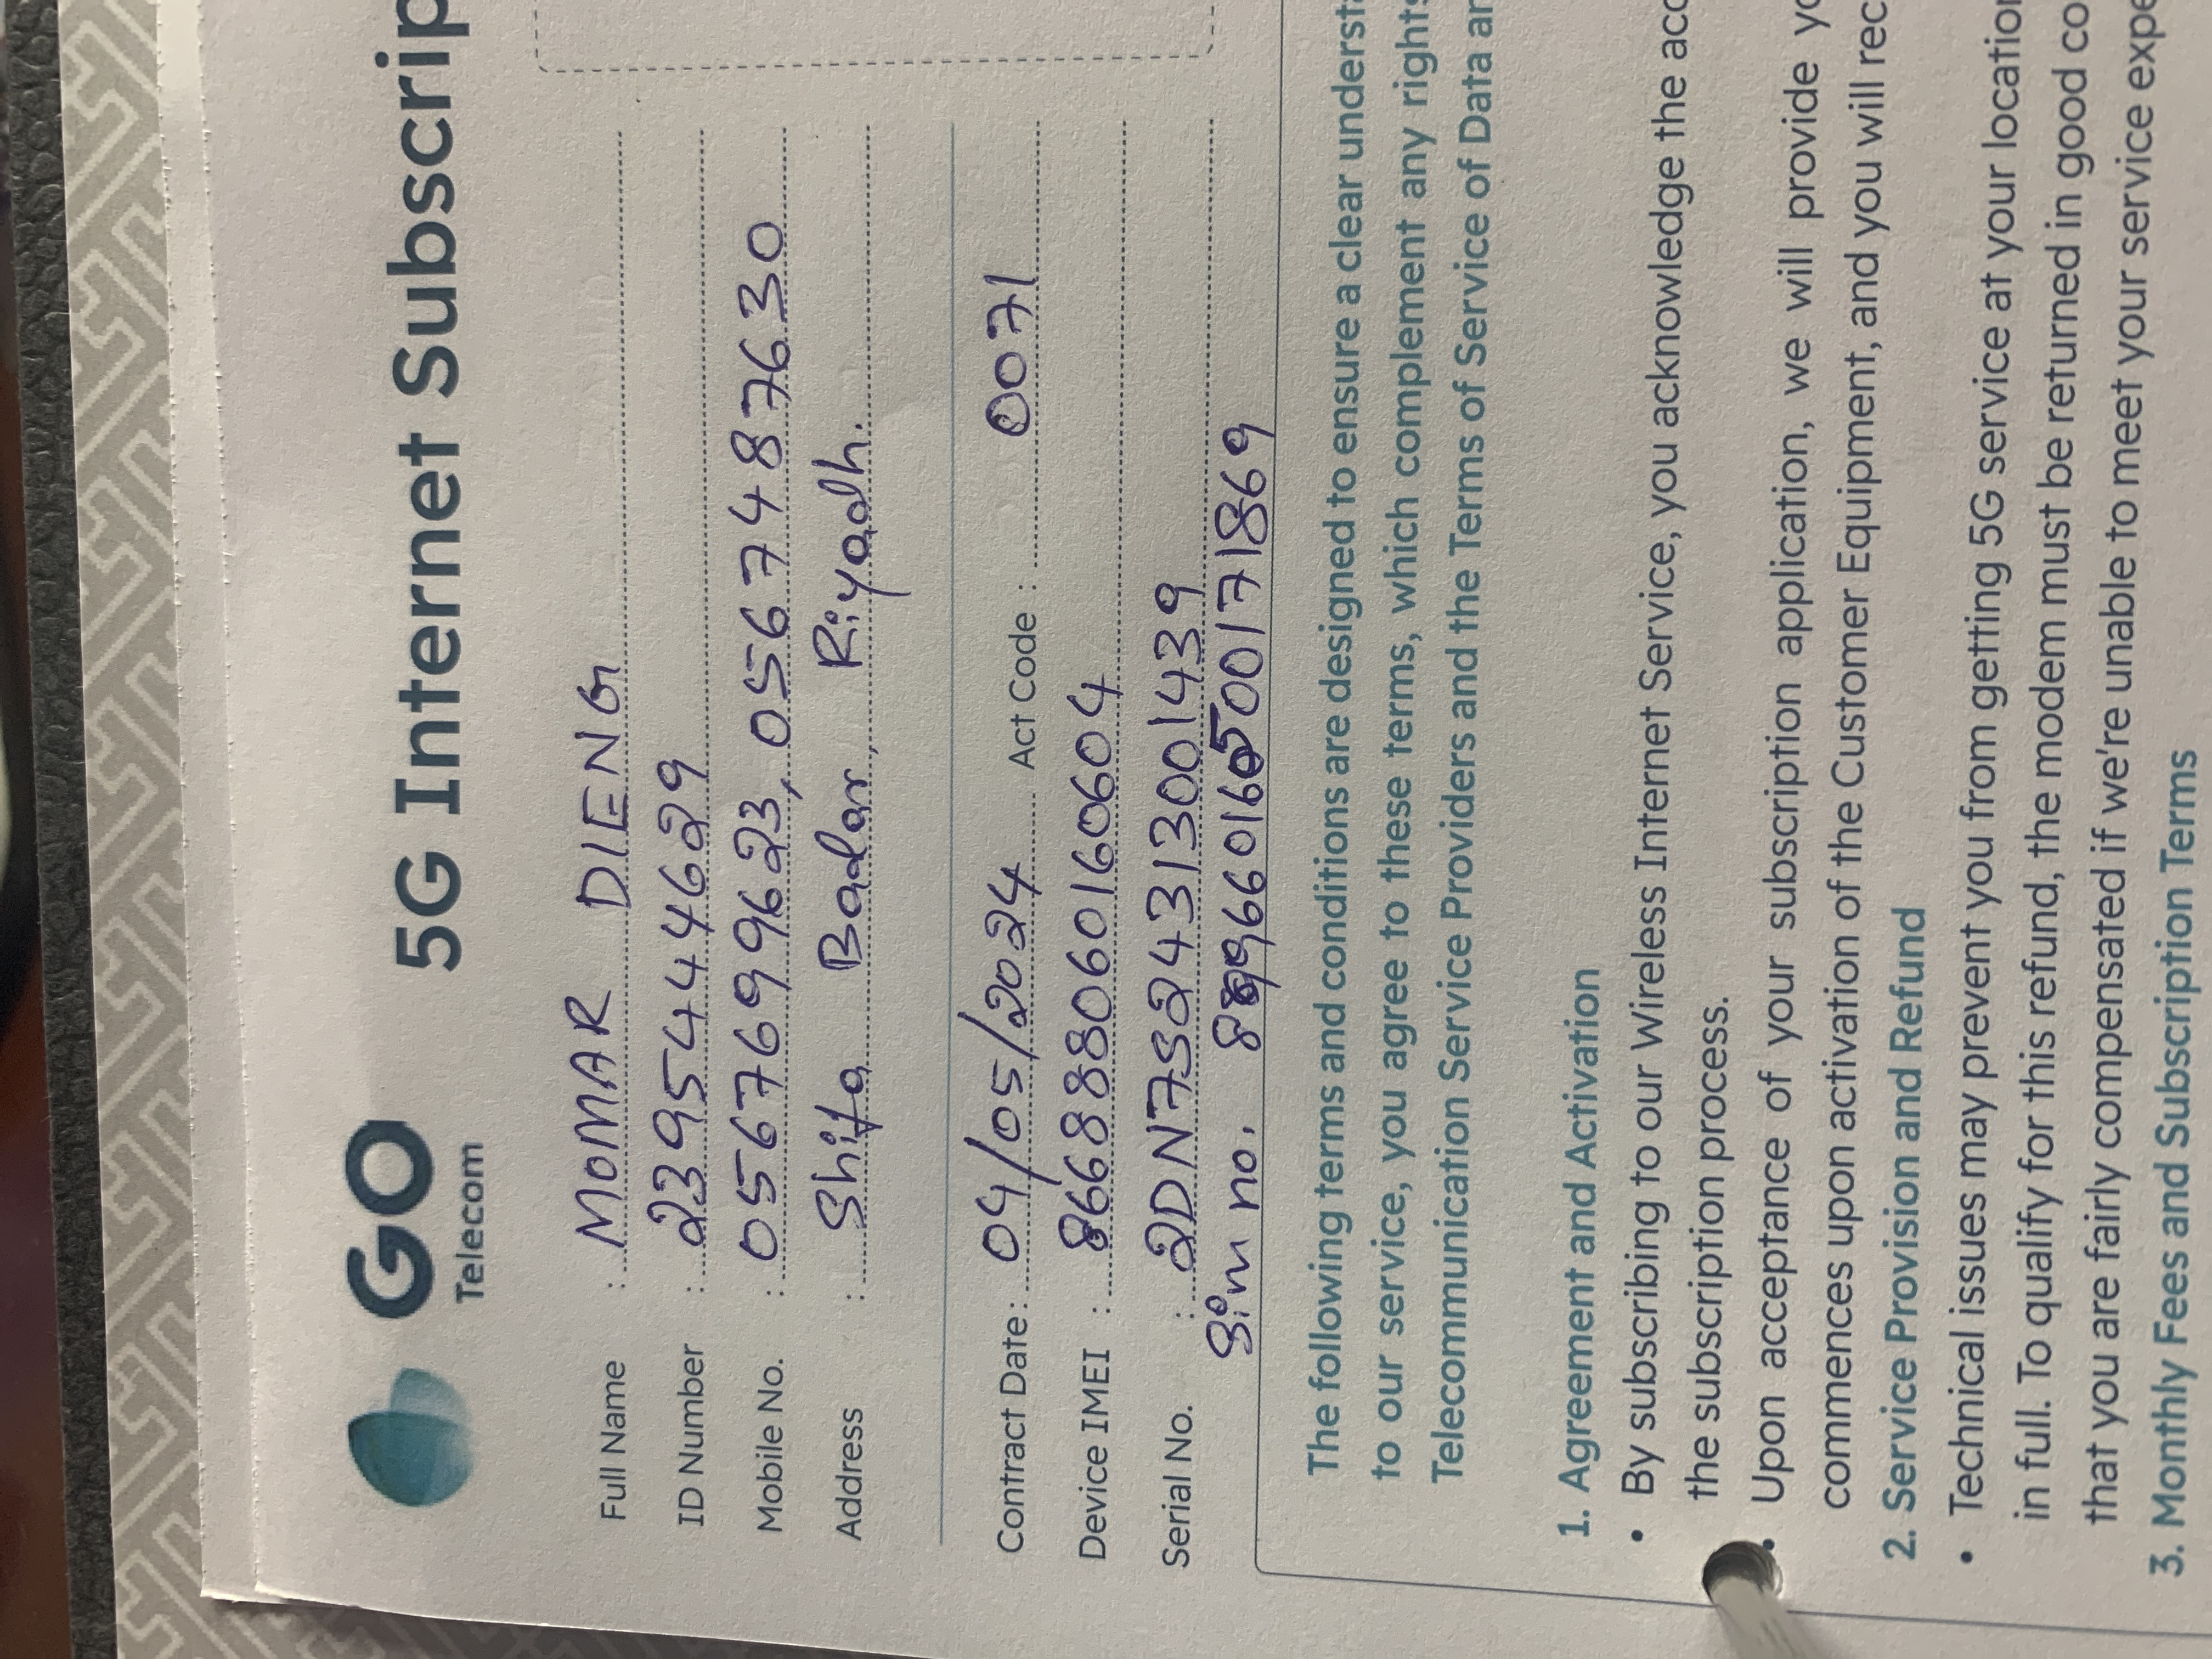 GO
Telecom
5G Internet Subscrip
Full Name : MOMAR DIENG
ID Number : 2395444629
Mobile No. : 0567699623, 0567487630
Address : Shifa Badar, Riyadh.
Contract Date: 04/05/2024 Act Code : 0071
Device IMEI : 86688060160604
Serial No. : 2DN7S24313001439
Sim no.
The following terms and conditions are designed to ensure a clear underst
to our service, you agree to these terms, which complement any rights
Telecommunication Service Providers and the Terms of Service of Data an
1. Agreement and Activation
• By subscribing to our Wireless Internet Service, you acknowledge the acc
the subscription process.
• Upon acceptance of your subscription application, we will provide yo
commences upon activation of the Customer Equipment, and you will rec
2. Service Provision and Refund
• Technical issues may prevent you from getting 5G service at your location
in full. To qualify for this refund, the modem must be returned in good co
that you are fairly compensated if we're unable to meet your service expe
3. Monthly Fees and Subscription Terms